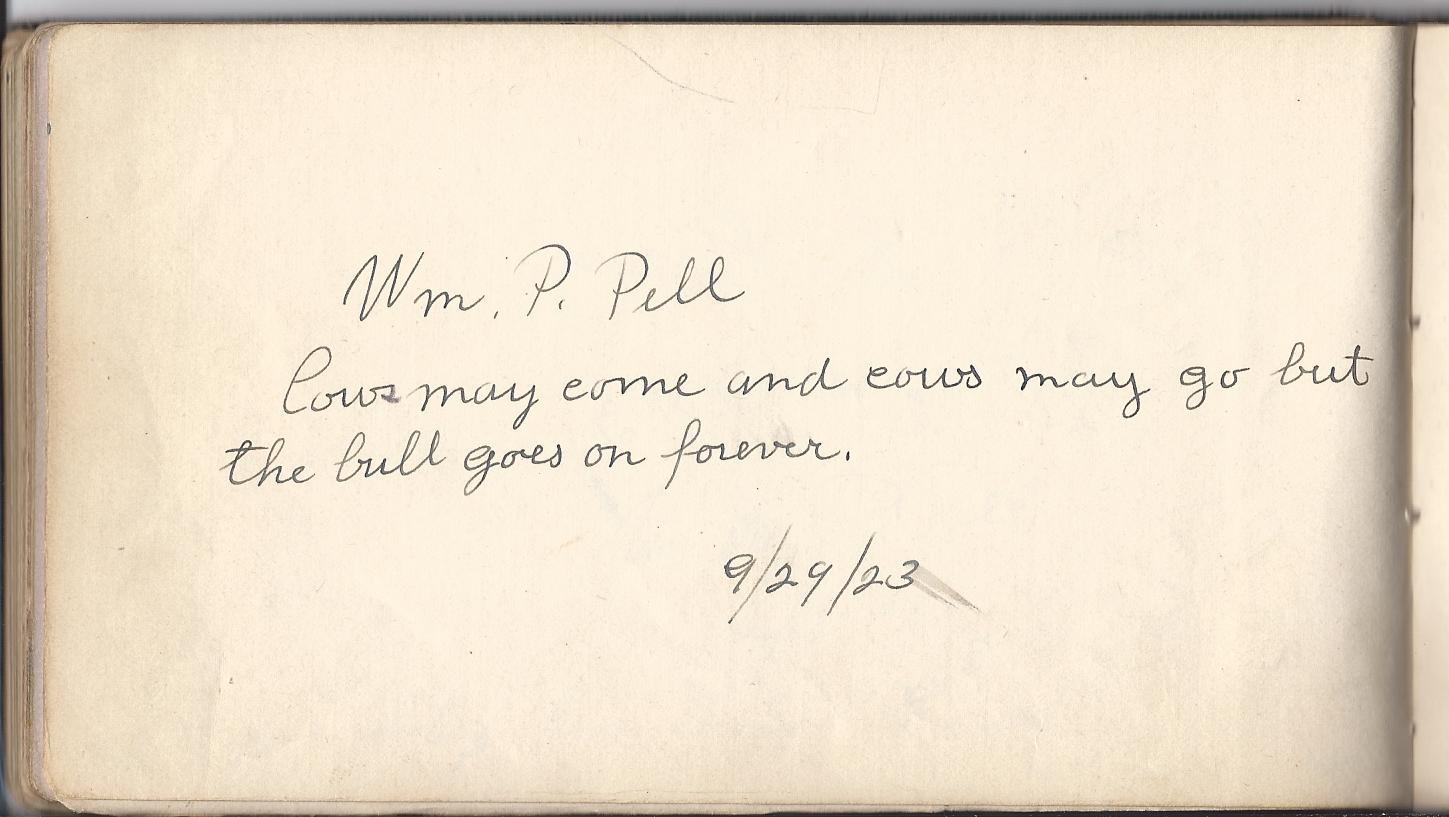 Wm. P. Pell
Cows may come and cows may go but
the bull goes on forever.
9/29/23